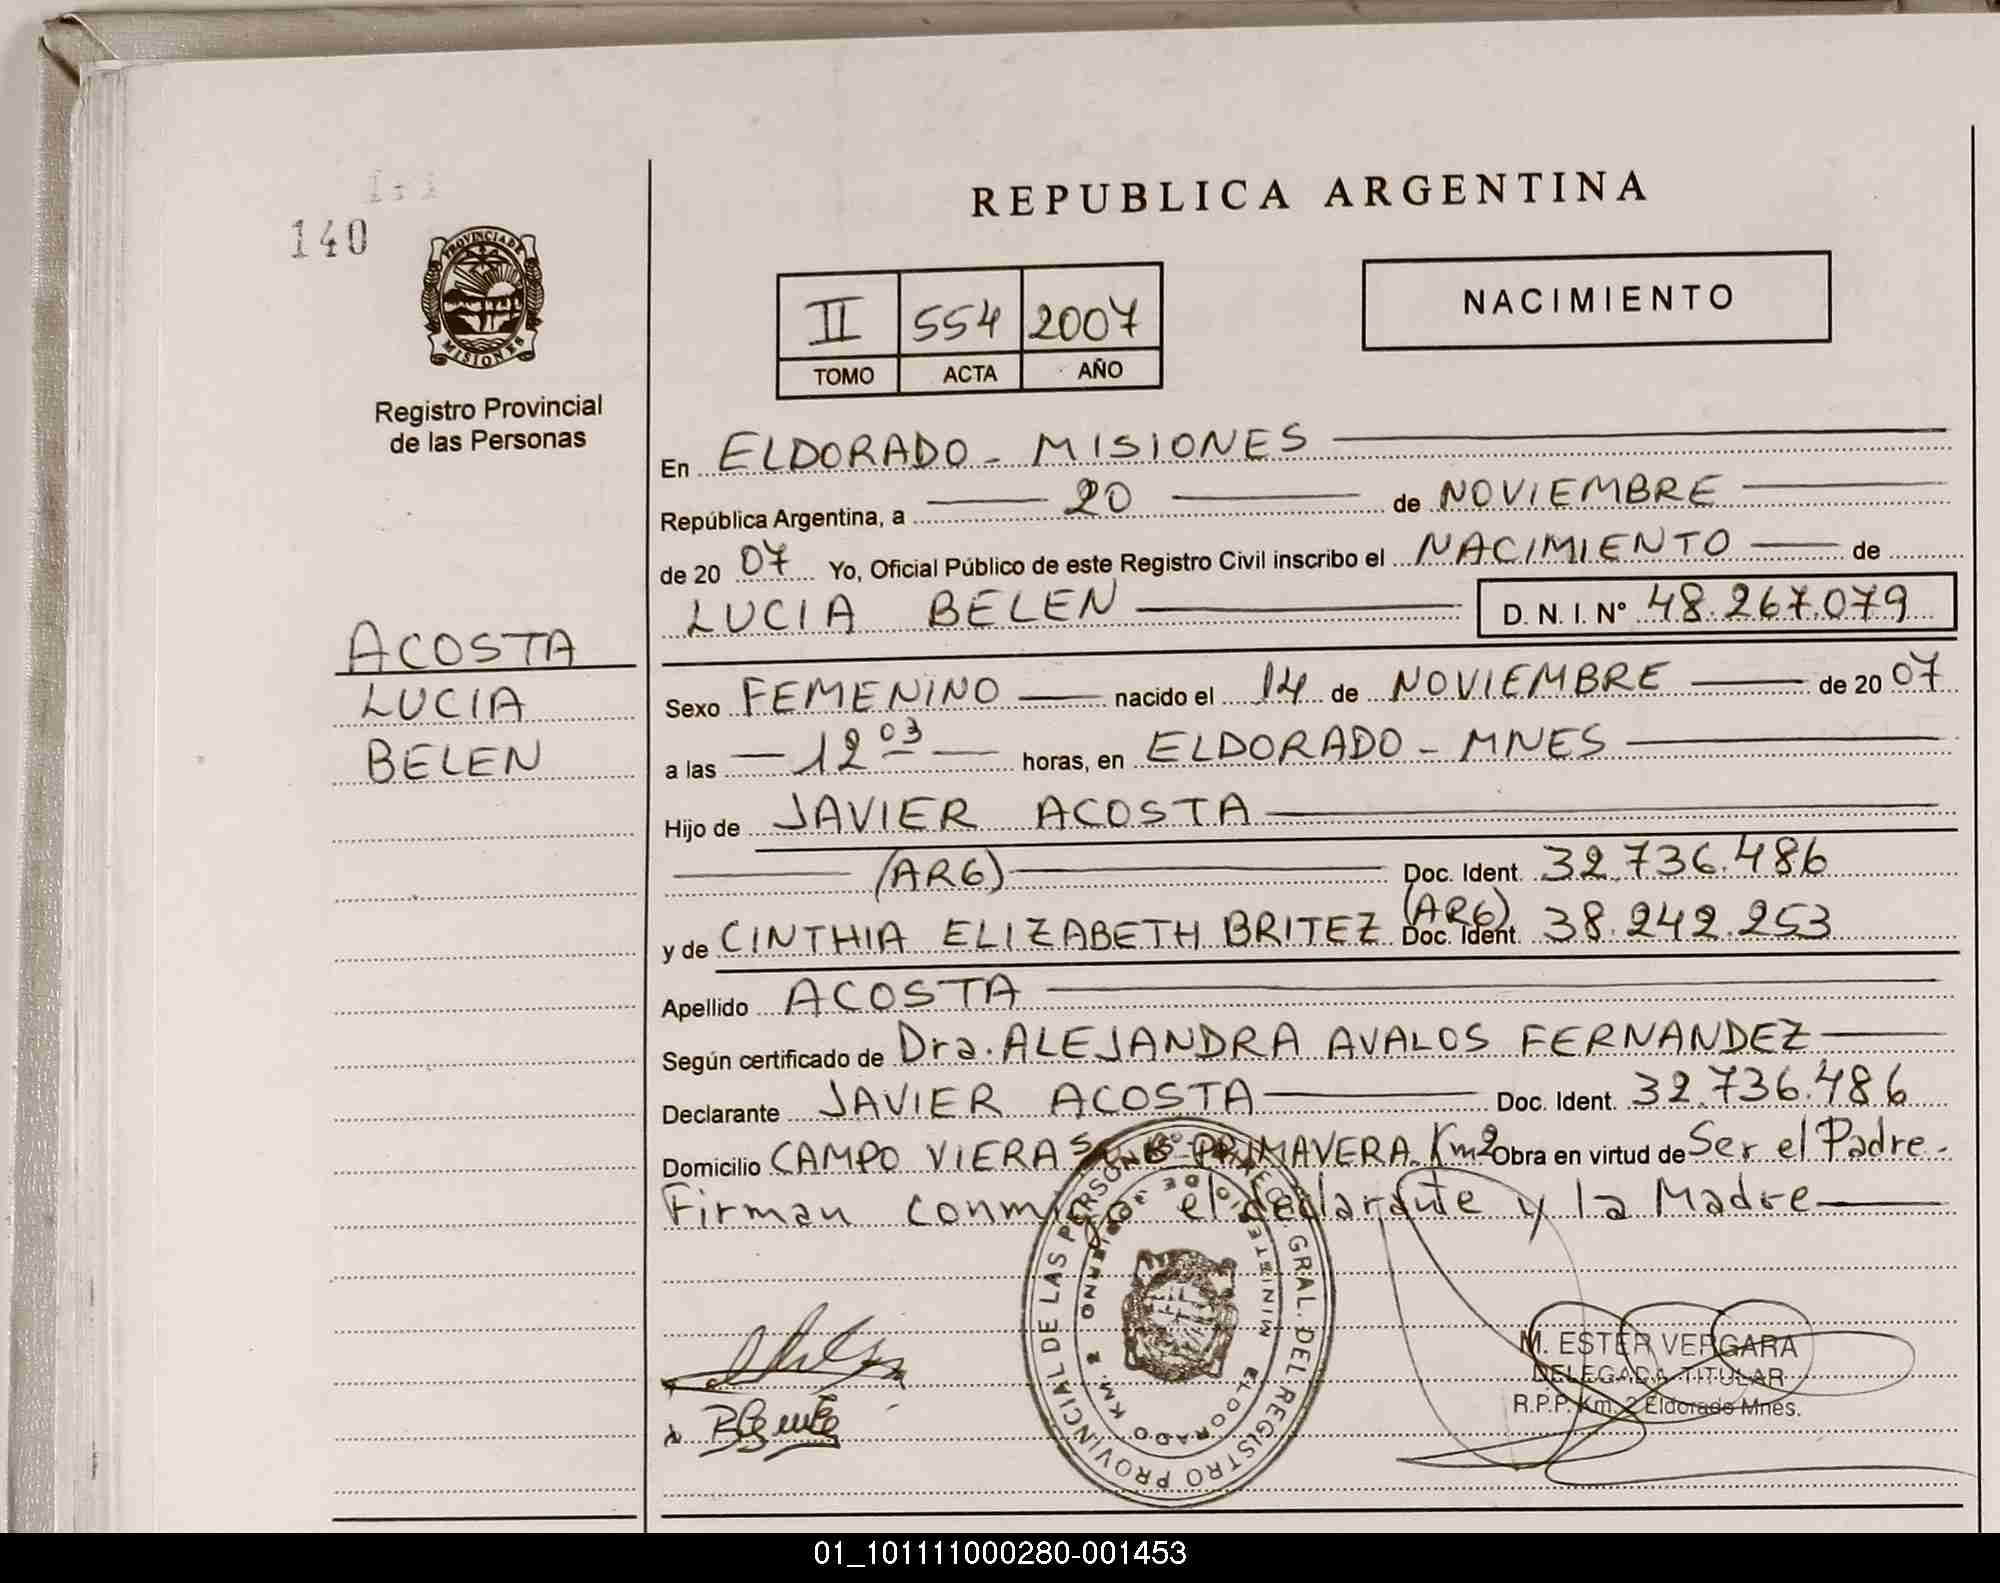 140
PROVINCIA DE
MISIONES
Registro Provincial
de las Personas
ACOSTA
LUCIA
BELEN
REPUBLICA ARGENTINA
II 554 2007
TOMO ACTA AÑO
NACIMIENTO
En ELDORADO - MISIONES
República Argentina, a 20 de NOVIEMBRE
de 2007 Yo, Oficial Público de este Registro Civil inscribo el NACIMIENTO de
LUCIA BELEN D. N. I. Nº 48.267.079
Sexo FEMENINO nacido el 14 de NOVIEMBRE de 2007
a las 12 03 horas, en ELDORADO - MNES
Hijo de JAVIER ACOSTA
(ARG) Doc. Ident. 32.736.486
y de CINTHIA ELIZABETH BRITEZ (ARG) Doc. Ident. 38.242.253
Apellido ACOSTA
Según certificado de Dra. ALEJANDRA AVALOS FERNANDEZ
Declarante JAVIER ACOSTA Doc. Ident. 32.736.486
Domicilio CAMPO VIERA PRIMAVERA Km2 Obra en virtud de Ser el Padre.
Firman conmigo el declarante y la Madre
GRAL. DEL REGISTRO PROVINCIAL DE LAS PERSONAS
MINISTERIO DE GOBIERNO
ELDORADO KM. 2
M. ESTER VERGARA
DELEGADA TITULAR
R.P.P. Km. 2 Eldorado Mnes.
01_101111000280-001453